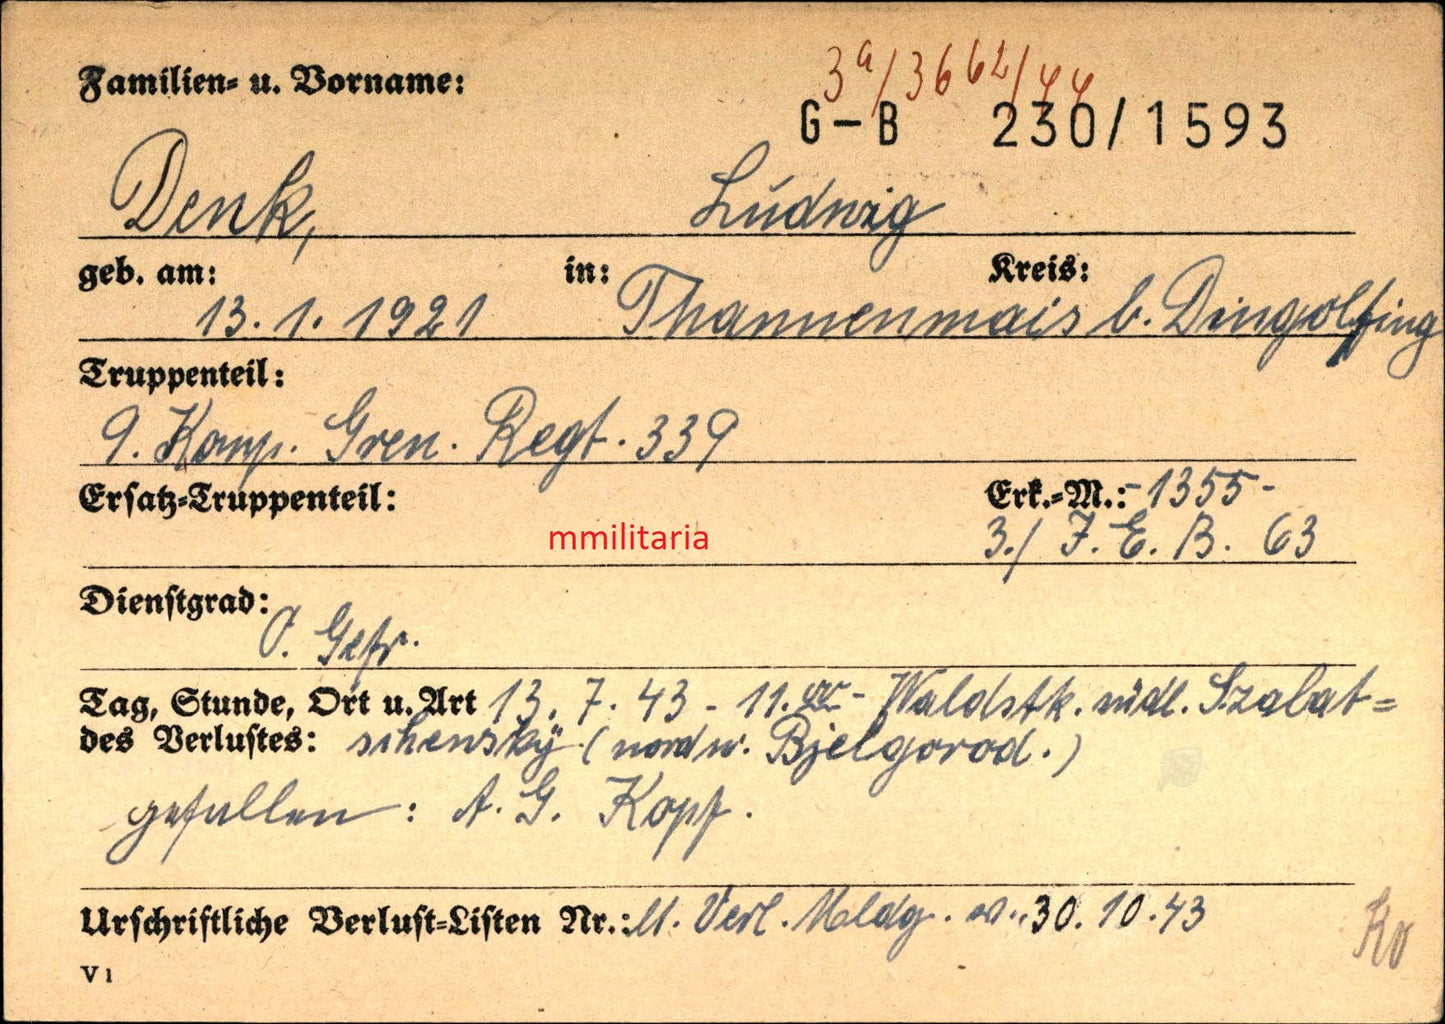 3a/3662/44
Familien- u. Vorname:
G-B 230/1593
Denk, Ludwig
geb. am: in: Kreis:
13. 1. 1921 Thannenmais b. Dingolfing
Truppenteil:
9. Komp. Gren. Regt. 339
Ersatz-Truppenteil: Erk.-M.: -1355-
mmilitaria
3./ J. E. B. 63
Dienstgrad:
O. Gefr.
Tag, Stunde, Ort u. Art 13. 7. 43 - 11.00 - Waldstk. südl. Szabat=
des Verlustes: schensky (nordw. Bjelgorod.)
gefallen: A. G. Kopf.
Urschriftliche Verlust-Listen Nr.: lt. Verl. Meldg. v. 30. 10. 43
V 1